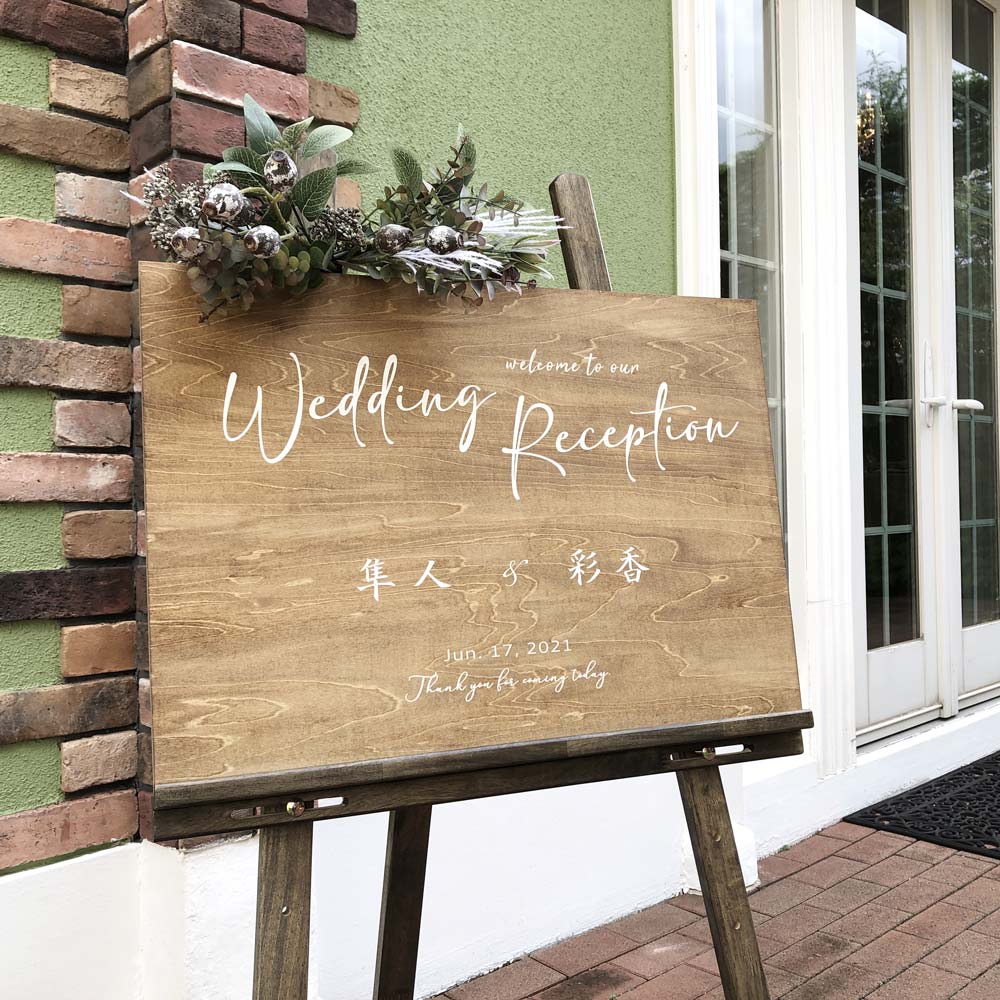 welcome to our
Wedding Reception
隼人 & 彩香
Jun. 17, 2021
Thank you for coming today.